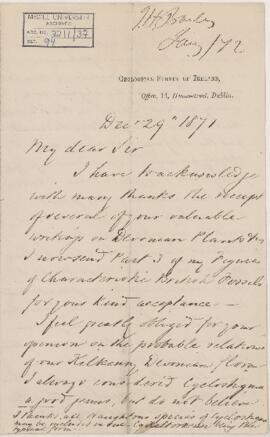 McGILL UNIVERSITY
ARCHIVES
ACC. NO. 3211/37
REF. 94
Jany/72
GEOLOGICAL SURVEY OF IRELAND,
Office, 14, Hume-street, Dublin.
Decr 29th 1871
My dear Sir
I have to acknowledge
with many thanks the receipt
of several of your valuable
writings on Devonian Plants &c
I now send Part 3 of my Figures
of Characteristic British Fossils
for your kind acceptance —
I feel greatly obliged for your
opinion on the probable relations
of our Kilkenny Devonian flora
I always considered Cyclostigma
a good genus, but do not believe
I think all Haughtons species of Cyclostigma
may be included in one Cyclostigma being the
typical form